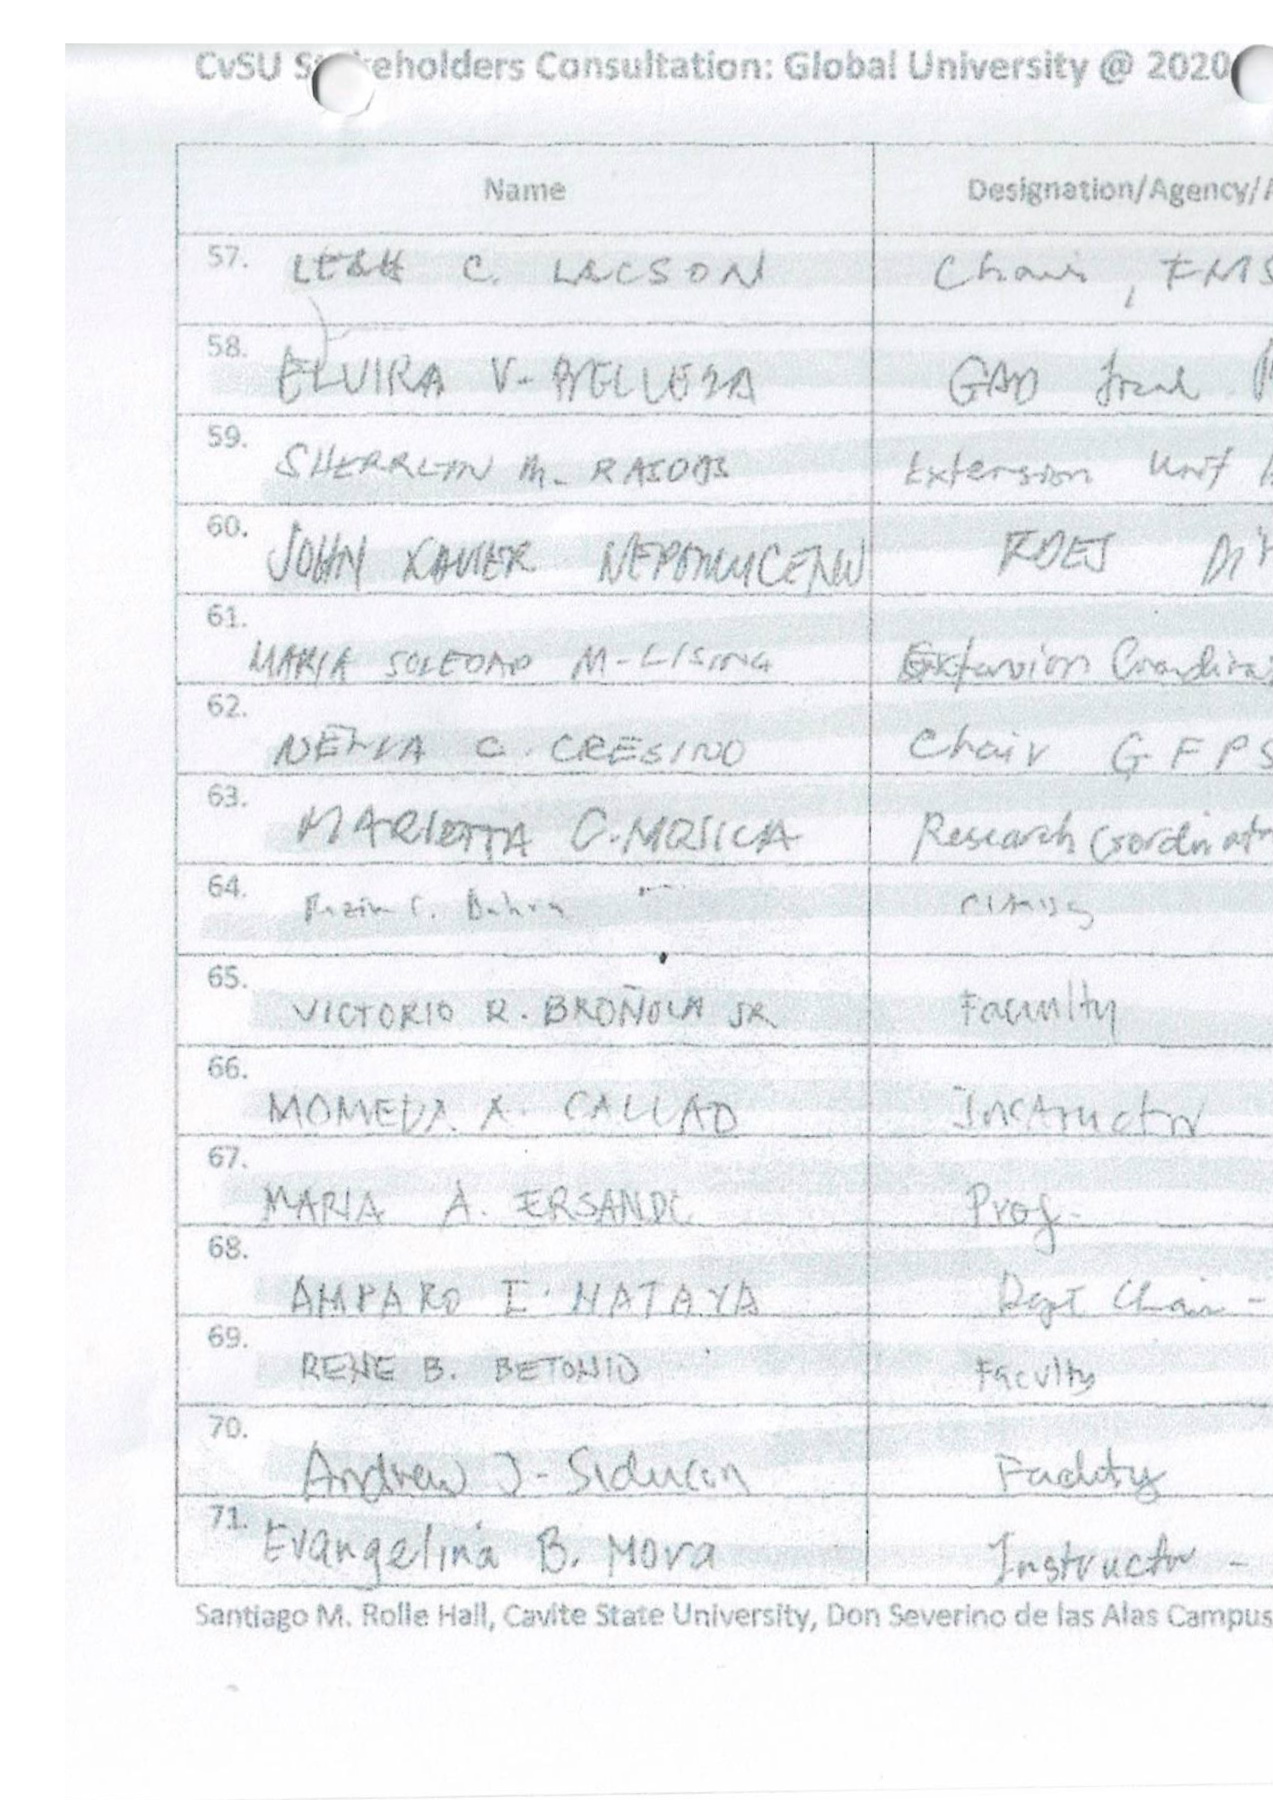 CvSU Stakeholders Consultation: Global University @ 2020
Name Designation/Agency/
57. LEAH C. LACSON Chair, FMS
58. ELVIRA V. GAD focal
59. SHERRLYN M. RASDAS Extension Unit
60. JOHN XAVIER NEPOMUCENO RDES
61. MARIA SOLEDAD M. LISING Extension
62. C. CRESINO Chair GFPS
63. MARIETTA C. MOJICA Research Coordinat
64.
65. VICTORIO R. BROÑOLA JR Faculty
66. A. CALLAD Instructor
67. MARIA A. Prof.
68. AMPARO I. NATAYA Dept Chair -
69. RENE B. BETONIO Faculty
70. Andrew J. Siducon Faculty
71. Evangelina B. Mora Instructor -
Santiago M. Rolle Hall, Cavite State University, Don Severino de las Alas Campus